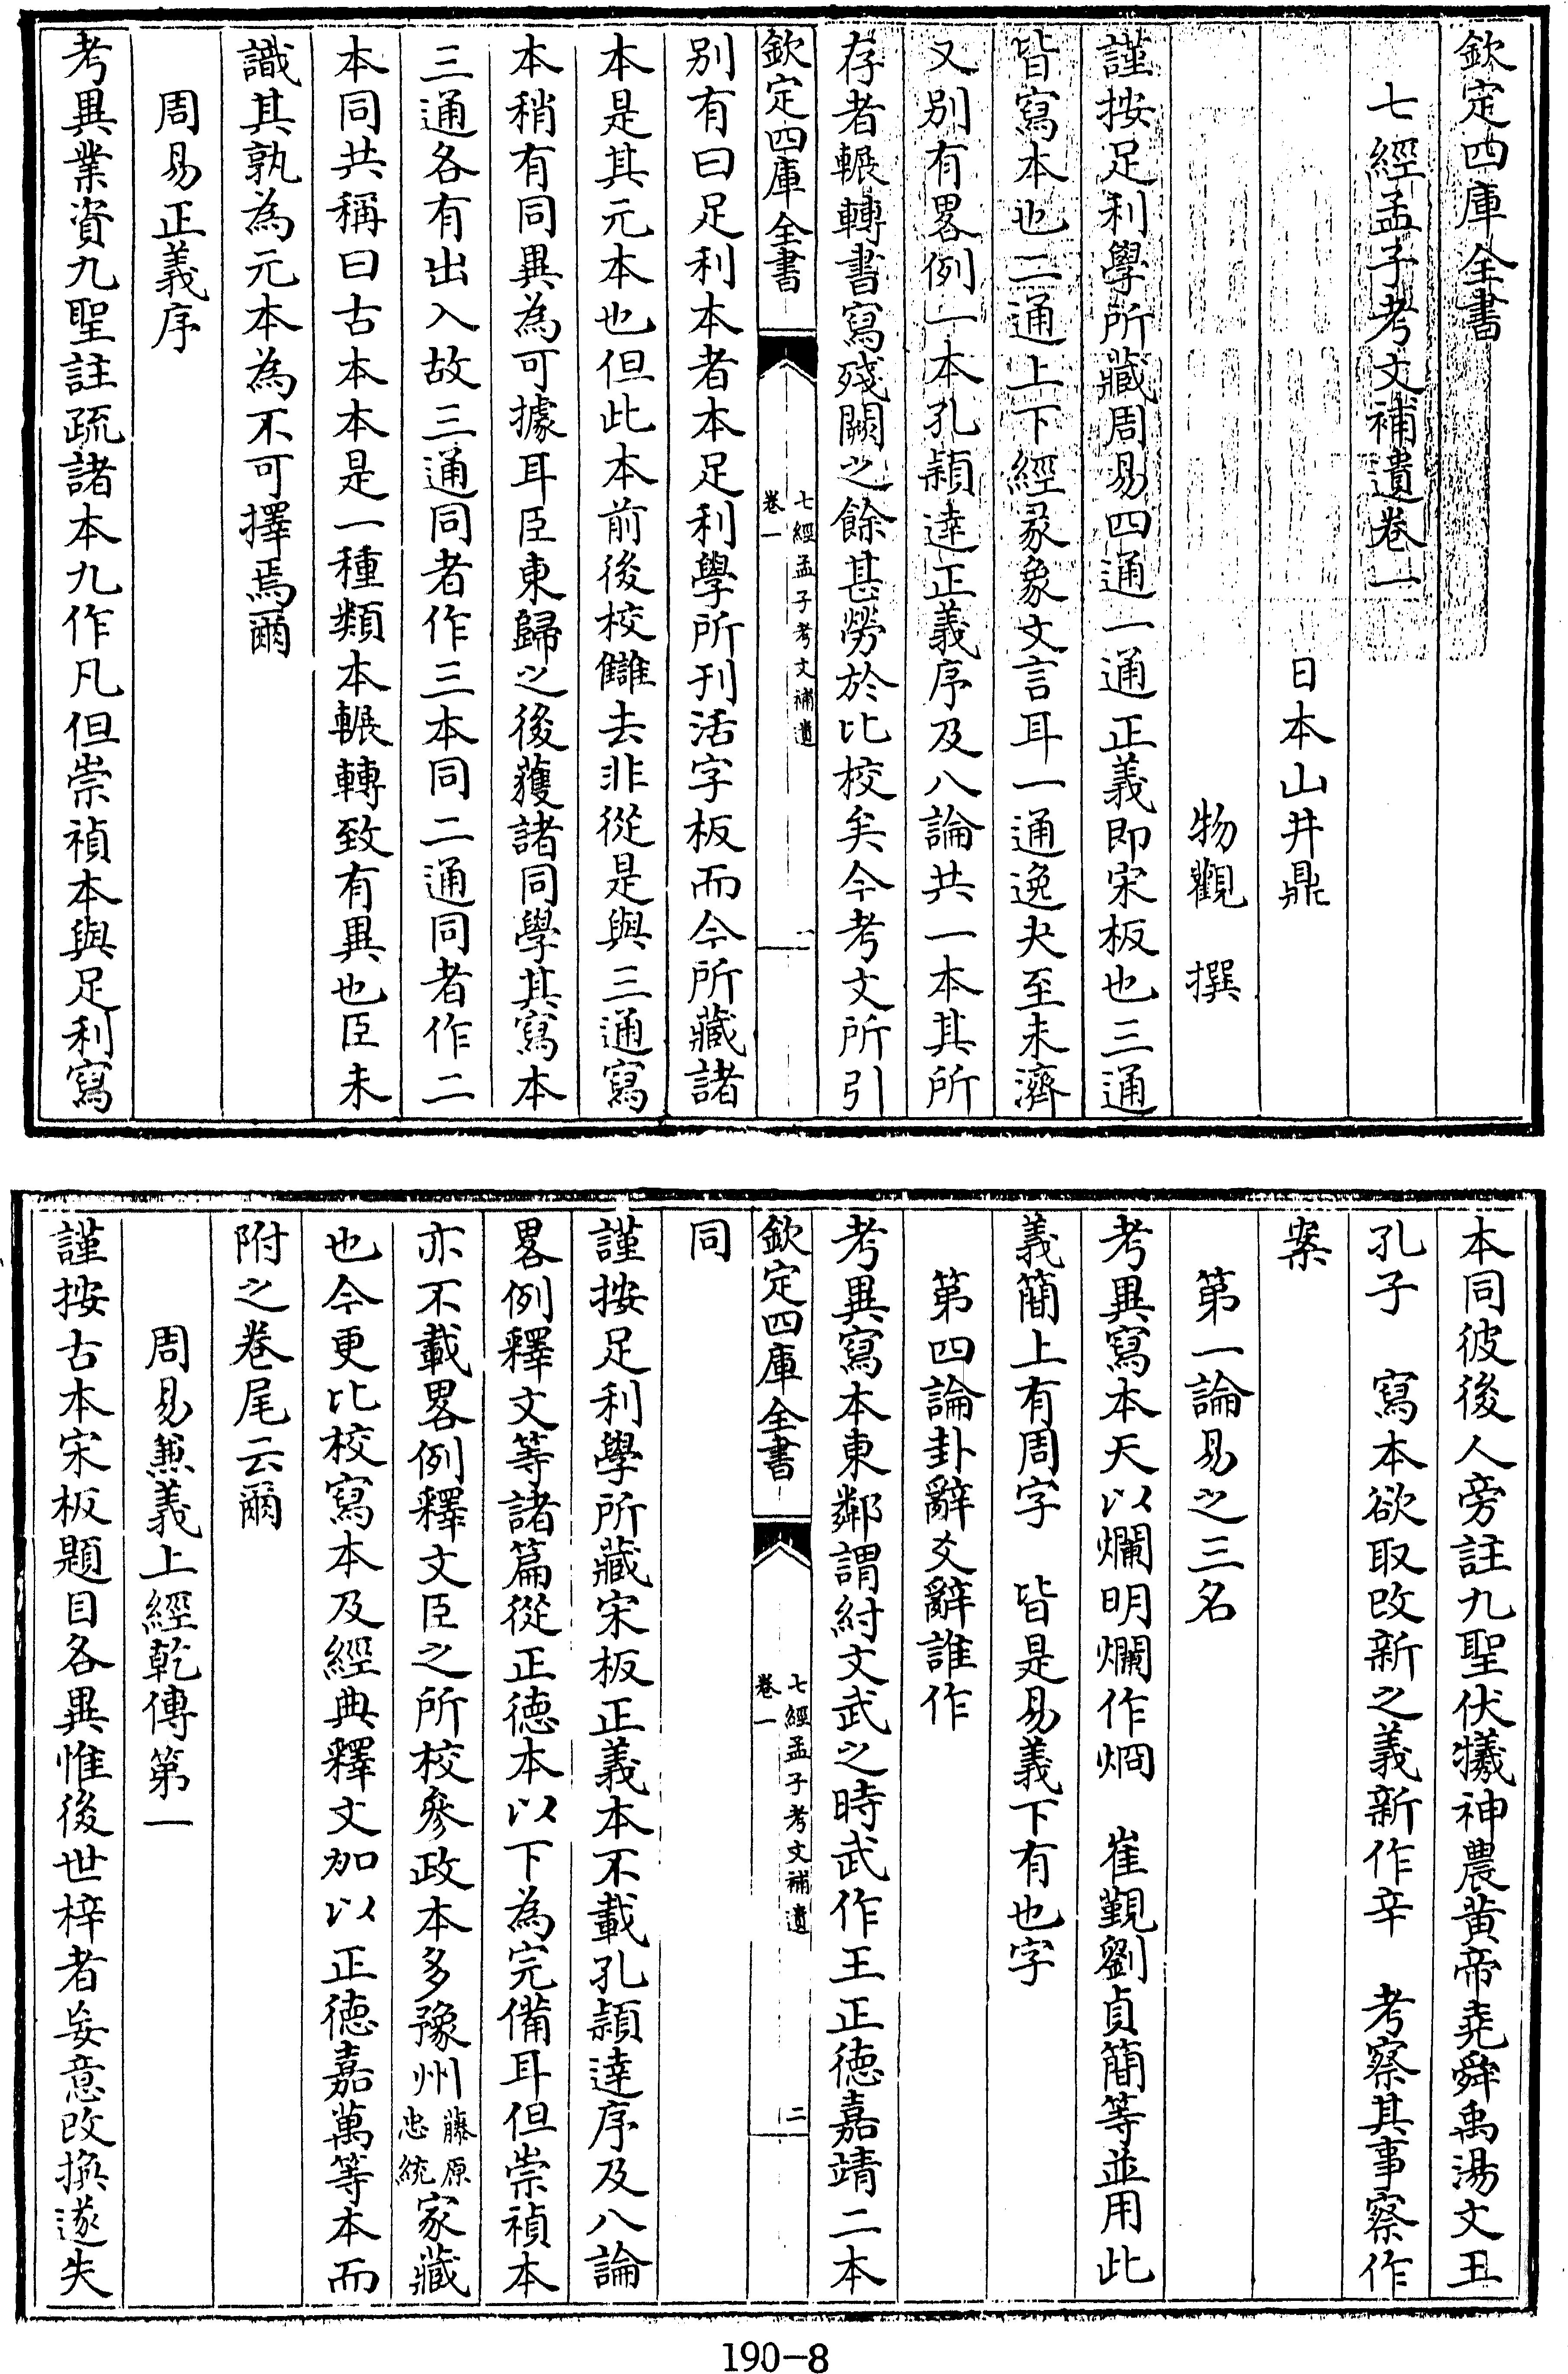 欽定四庫全書
七經孟子考文補遺卷一
日本山井鼎
物觀　撰
謹按足利學所藏周易四通一通正義即宋板也三通
皆寫本也二通上下經彖象文言耳一通逸夬至未濟
又別有畧例一本孔頴達正義序及八論共一本其所
存者輾轉書寫殘闕之餘甚勞於比校矣今考文所引
欽定四庫全書
七經孟子考文補遺
卷一
一
別有曰足利本者本足利學所刊活字板而今所藏諸
本是其元本也但此本前後校讎去非從是與三通寫
本稍有同異為可據耳臣東歸之後獲諸同學其寫本
三通各有出入故三通同者作三本同二通同者作二
本同共稱曰古本本是一種類本輾轉致有異也臣未
識其孰為元本為不可擇焉爾
周易正義序
考異業資九聖註疏諸本九作凡但崇禎本與足利寫
本同彼後人旁註九聖伏犧神農黃帝堯舜禹湯文王
孔子　寫本欲取改新之義新作辛　考察其事察作
案
第一論易之三名
考異寫本天以爛明爛作烱　崔覲劉貞簡等並用此
義簡上有周字　皆是易義下有也字
第四論卦辭爻辭誰作
考異寫本東鄰謂紂文武之時武作王正德嘉靖二本
欽定四庫全書
七經孟子考文補遺
卷一
二
同
謹按足利學所藏宋板正義本不載孔頴達序及八論
畧例釋文等諸篇從正德本以下為完備耳但崇禎本
亦不載畧例釋文臣之所校參政本多豫州藤原忠統家藏
也今更比校寫本及經典釋文加以正德嘉萬等本而
附之卷尾云爾
周易兼義上經乾傳第一
謹按古本宋板題目各異惟後世梓者妄意改換遂失
190-8